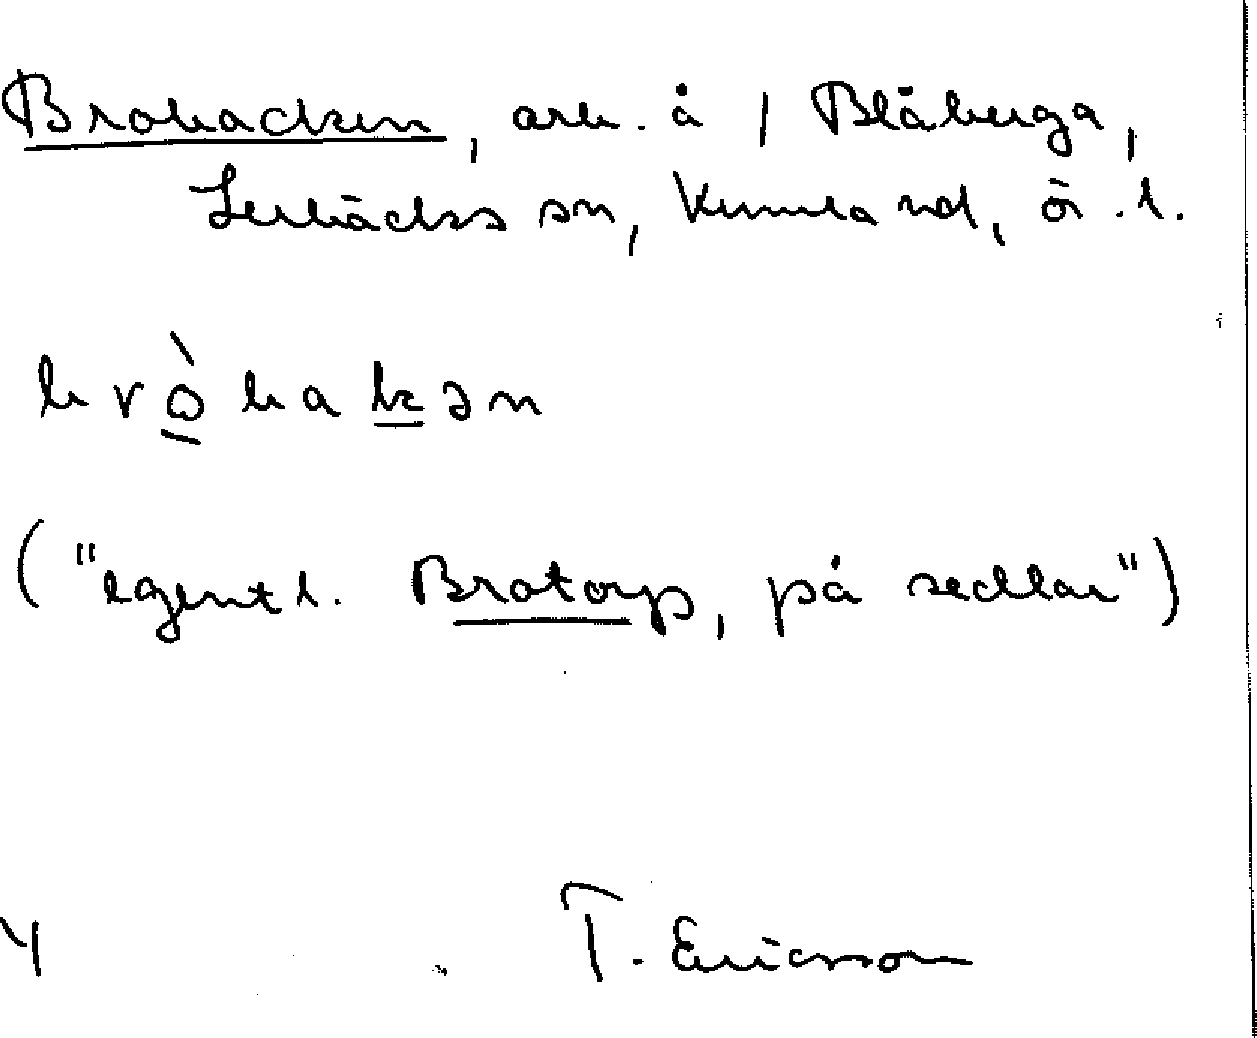 Brobacken, arb. å 1 Blåberga,
Lerbäcks sn, Kumla hd, ö.l.
bvò̱bak̲ən
("egentl. Brotorp, på sedlar")
T. Ericsson